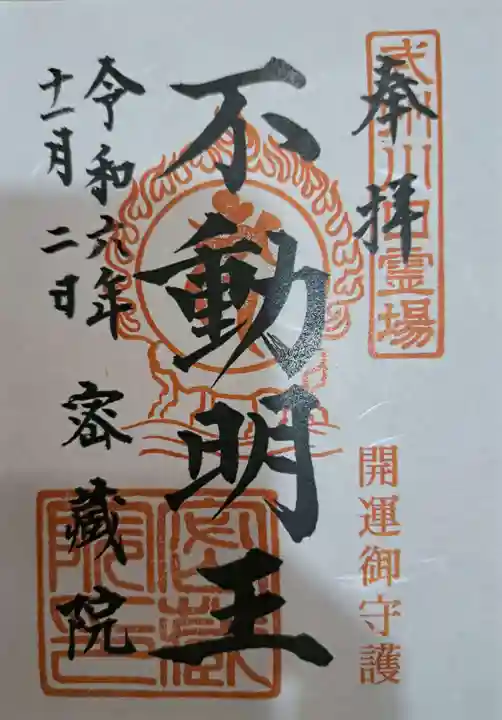 奉拝
武州川口霊場
開運御守護
不動明王
令和六年
十一月二日
密蔵院